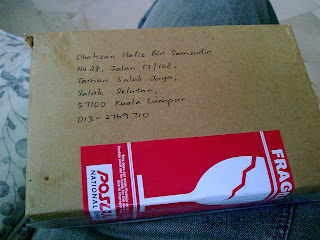 Shahzan Hafiz Bin Samsudin
No 28, Jalan 17/108A,
Taman Salak Jaya,
Salak Selatan,
57100 Kuala Lumpur
013-2769710
FRAG
POSL
NATIONAL